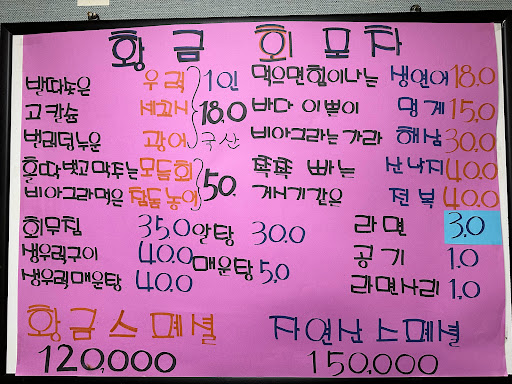 황금 회포차
우럭 1인 먹으면힘이나는 냉연어 18.0
고칸슘 세꼬시 18.0 바다 이쁠이 멍게 15.0
벌러덩누운 광어 국산 비아그라는가라 해삼 30.0
홀따벗고막주는 모듬회 푹푹 빠는 산낙지 40.0
비아그라먹은 참돔농어 50. 거시기같은 전복 40.0
회무침 35.0 알탕 30.0 라면 3.0
생우럭구이 40.0 매운탕 5.0 공기 1.0
생우럭매운탕 40.0 라면사리 1.0
황금스페셜 자연산스페셜
120,000 150,000